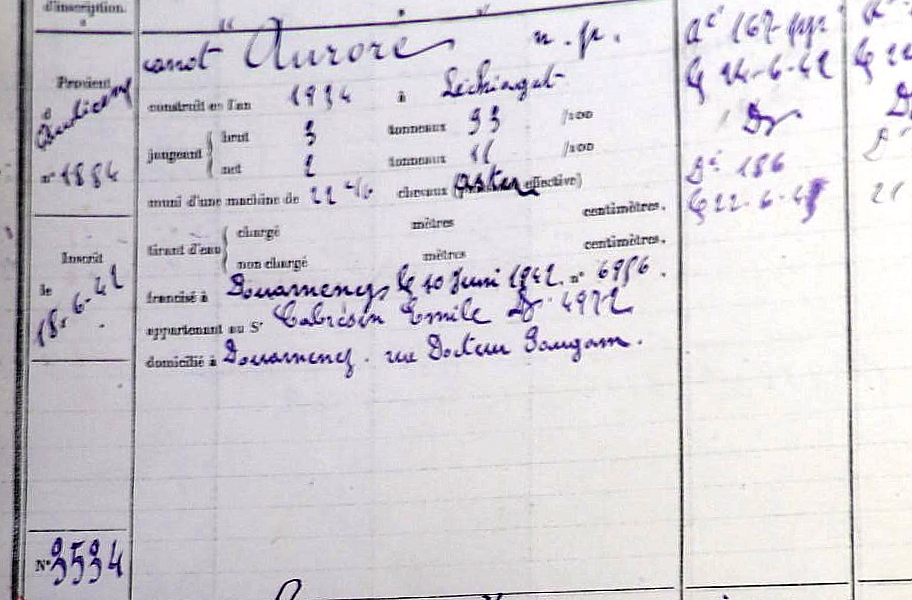 d'inscription.
canot Aurore n.p.
Provient
d Audierne
n° 1884
construit en l'an 1934 à Léchiagat
jaugeant { brut 3 tonneaux 93 /100
net 2 tonneaux 11 /100
muni d'une machine de 22 c/v chevaux (Aster effective)
tirant d'eau { chargé mètres centimètres.
non chargé mètres centimètres.
francisé à Douarnenez le 10 Juin 1942. n° 6956.
appartenant au Sr Cabrésin Emile Dz 4972
domicilié à Douarnenez. rue Docteur
Inscrit
le
18-6-42
N° 3534
167
14-6-42
Dz
186
22-6-4